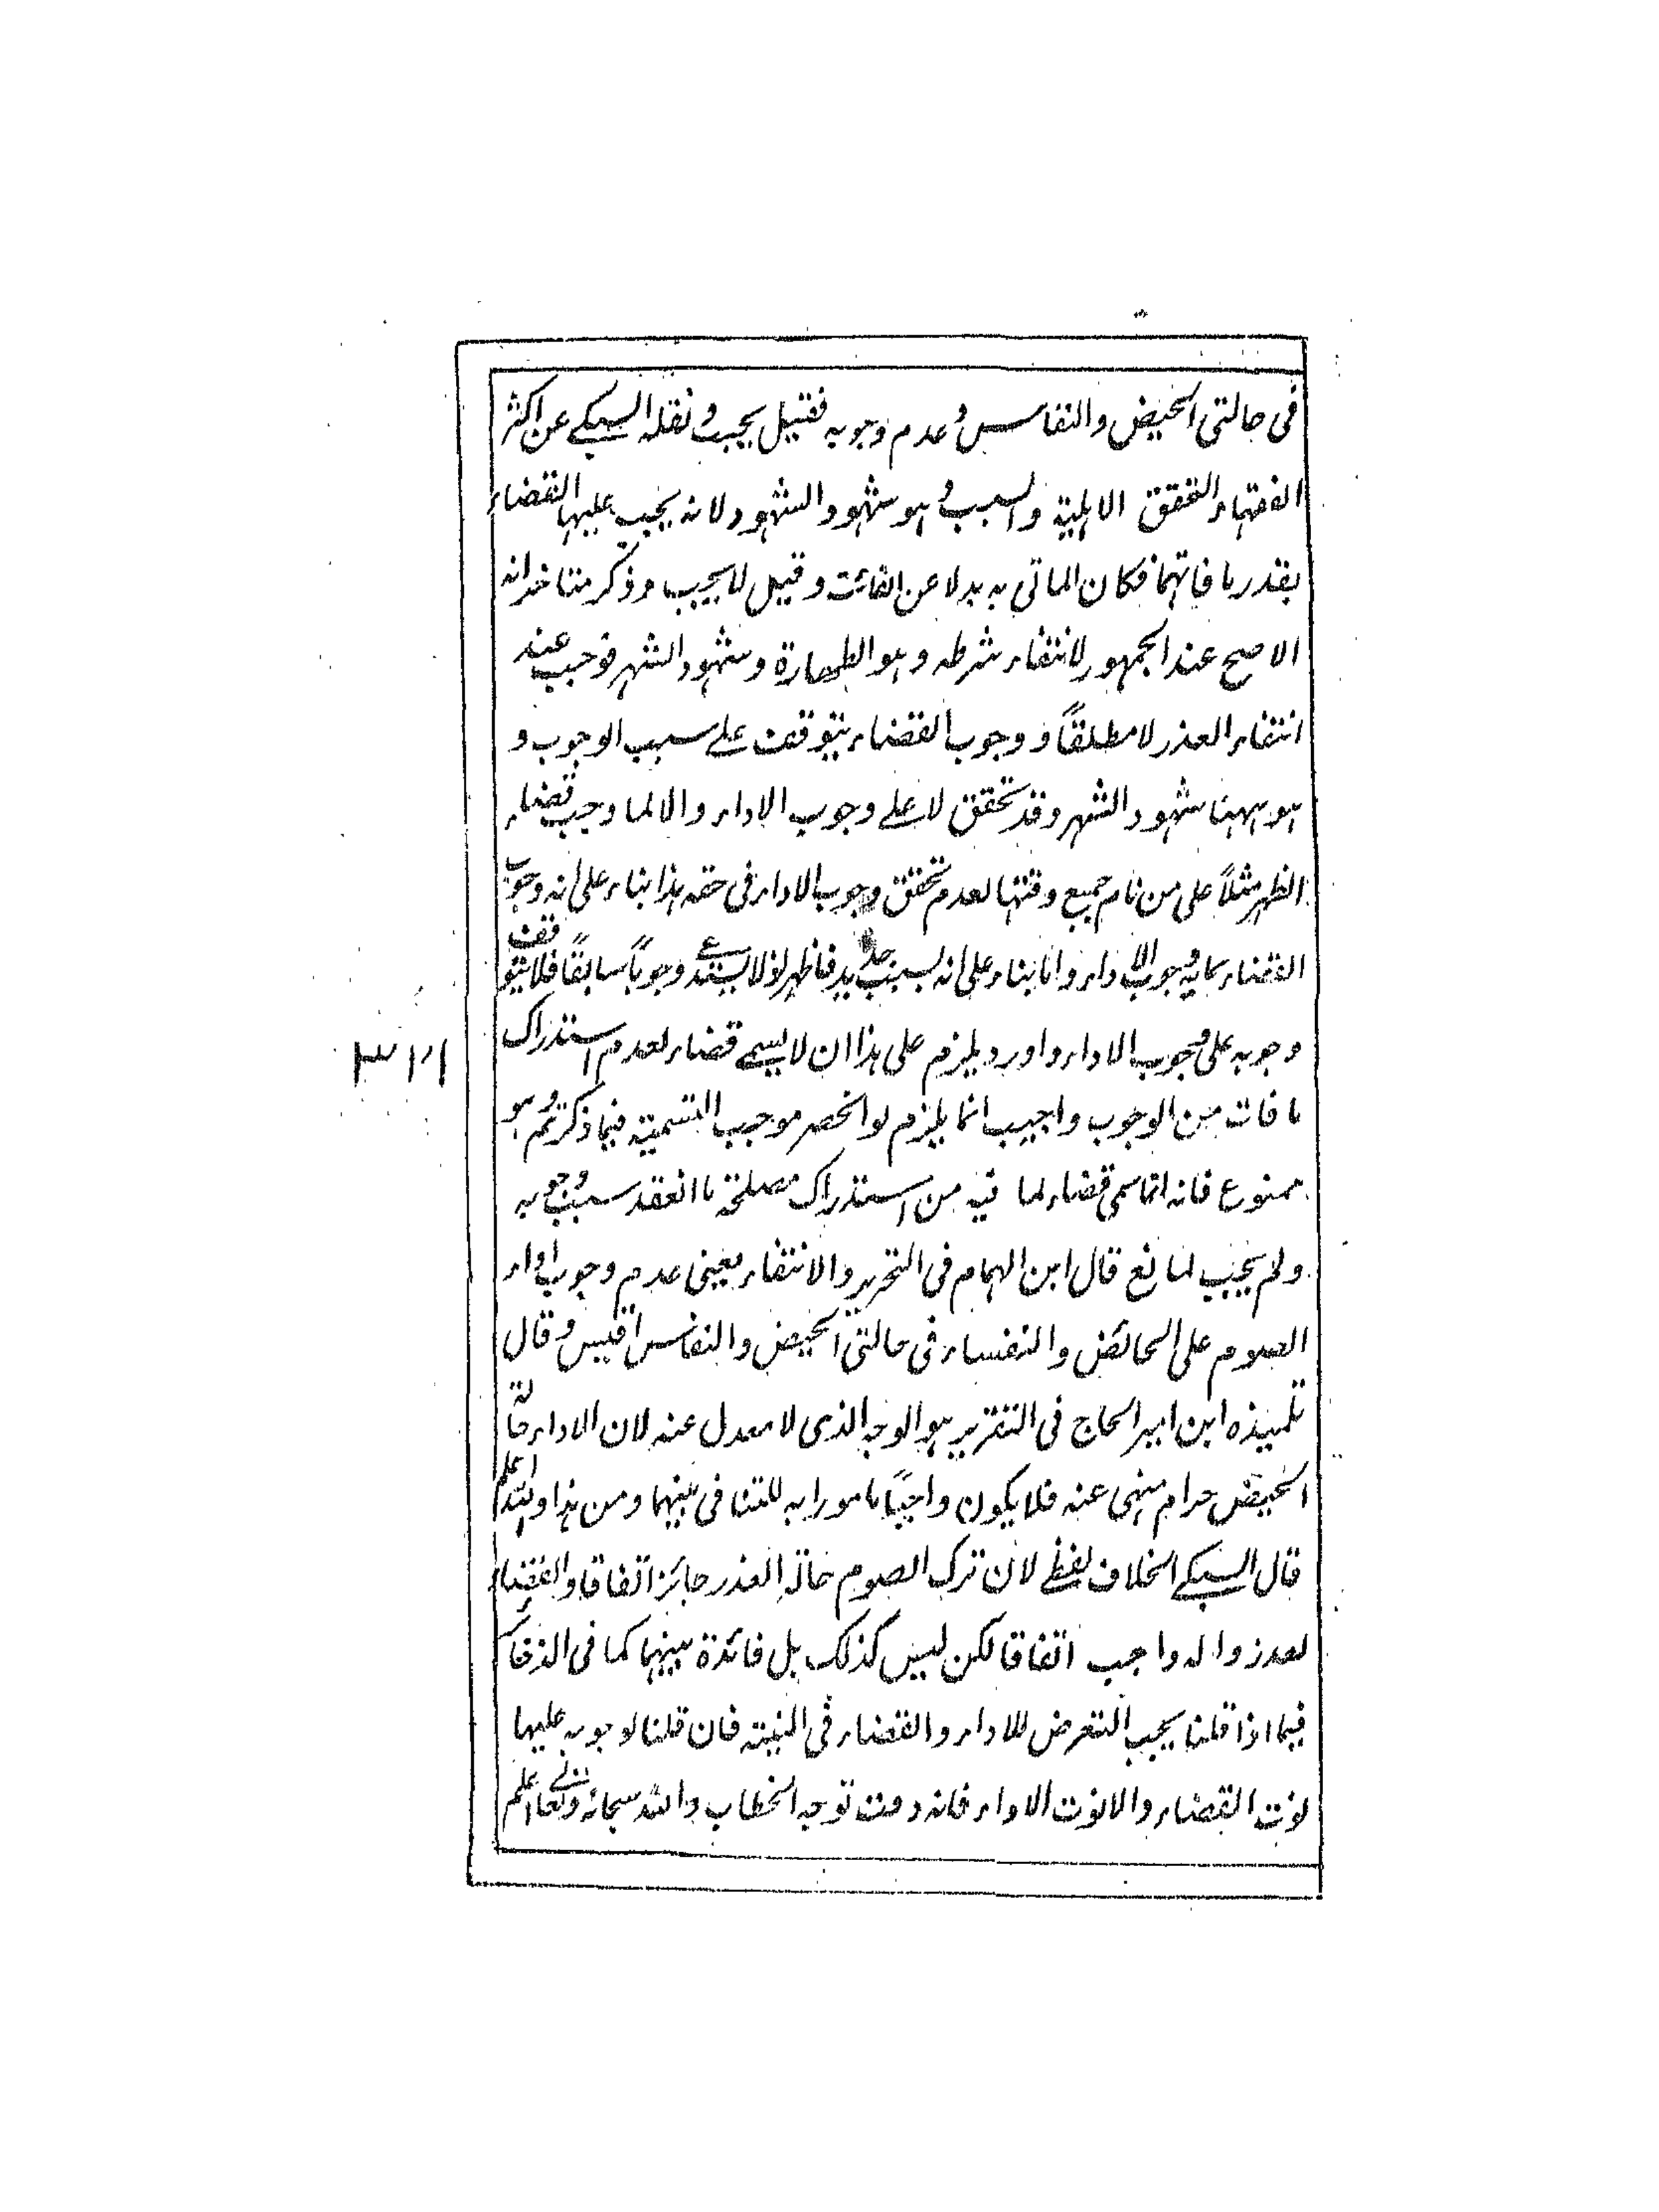 فى حالتى الحيض والنفاس وعدم وجوبه فقيل يجب ونقله السبكے عن اكثر
الفقهاء لتحقق الاهلية والسبب وهو شهود الشهود لانه يجب عليها القضاء
بقدر ما فاتهما فكان الماتى به بدلا عن الفائت وقيل لا يجب وذكر متاخر انه
الاصح عند الجمهور لانتفاء شرطه وهو الطهارة وشهود الشهر فوجب عند
انتفاء العذر لا مطلقاً ووجوب القضاء يتوقف علے سبب الوجوب و
هو ههنا شهود الشهر وقد تحقق لا علے وجوب الاداء والا لما وجب قضاء
الظهر مثلاً على من نام جميع وقتها لعدم تحقق وجوب الاداء فى حقه هذا بناء على انه وجوب
القضاء بما به وجوب الاداء واما بناء على انه بسبب جديد فاظهر اذ لا يستدعے وجوباً سابقاً فلا يتوقف
وجوبه على وجوب الاداء واورد يلزم على هذا ان لا يسمے قضاء لعدم استدراك
ما فات من الوجوب واجيب انما يلزم لو انحصر موجب التسمية فيما ذكرتم وهو
ممنوع فانه انما سمى قضاء لما فيه من استدراك مصلحة ما انعقد سبب وجوبه
ولم يجب لمانع قال ابن الهمام فى التحرير والانتفاء يعنى عدم وجوب اداء
الصوم على الحائض والنفساء فى حالتى الحيض والنفاس اقيس وقال
تلميذه ابن امير الحاج فى التقرير هو الوجه الذى لا معدل عنه لان الاداء حالة
الحيض حرام منهى عنه فلا يكون واجباً مامورا به للتنافى بينهما ومن هذا والله اعلم
قال السبكے الخلاف لفظے لان ترك الصوم حالة العذر جائز اتفاقا والقضاء
بعد زواله واجب اتفاقا لكن ليس كذلك بل فائدة بينهما كما فى الذخائر
فيما اذا قلنا يجب التعرض للاداء والقضاء فى النية فان قلنا لوجوبه عليها
نوت القضاء والا نوت الاداء فانه وقت توجه الخطاب والله سبحانه وتعالے اعلم